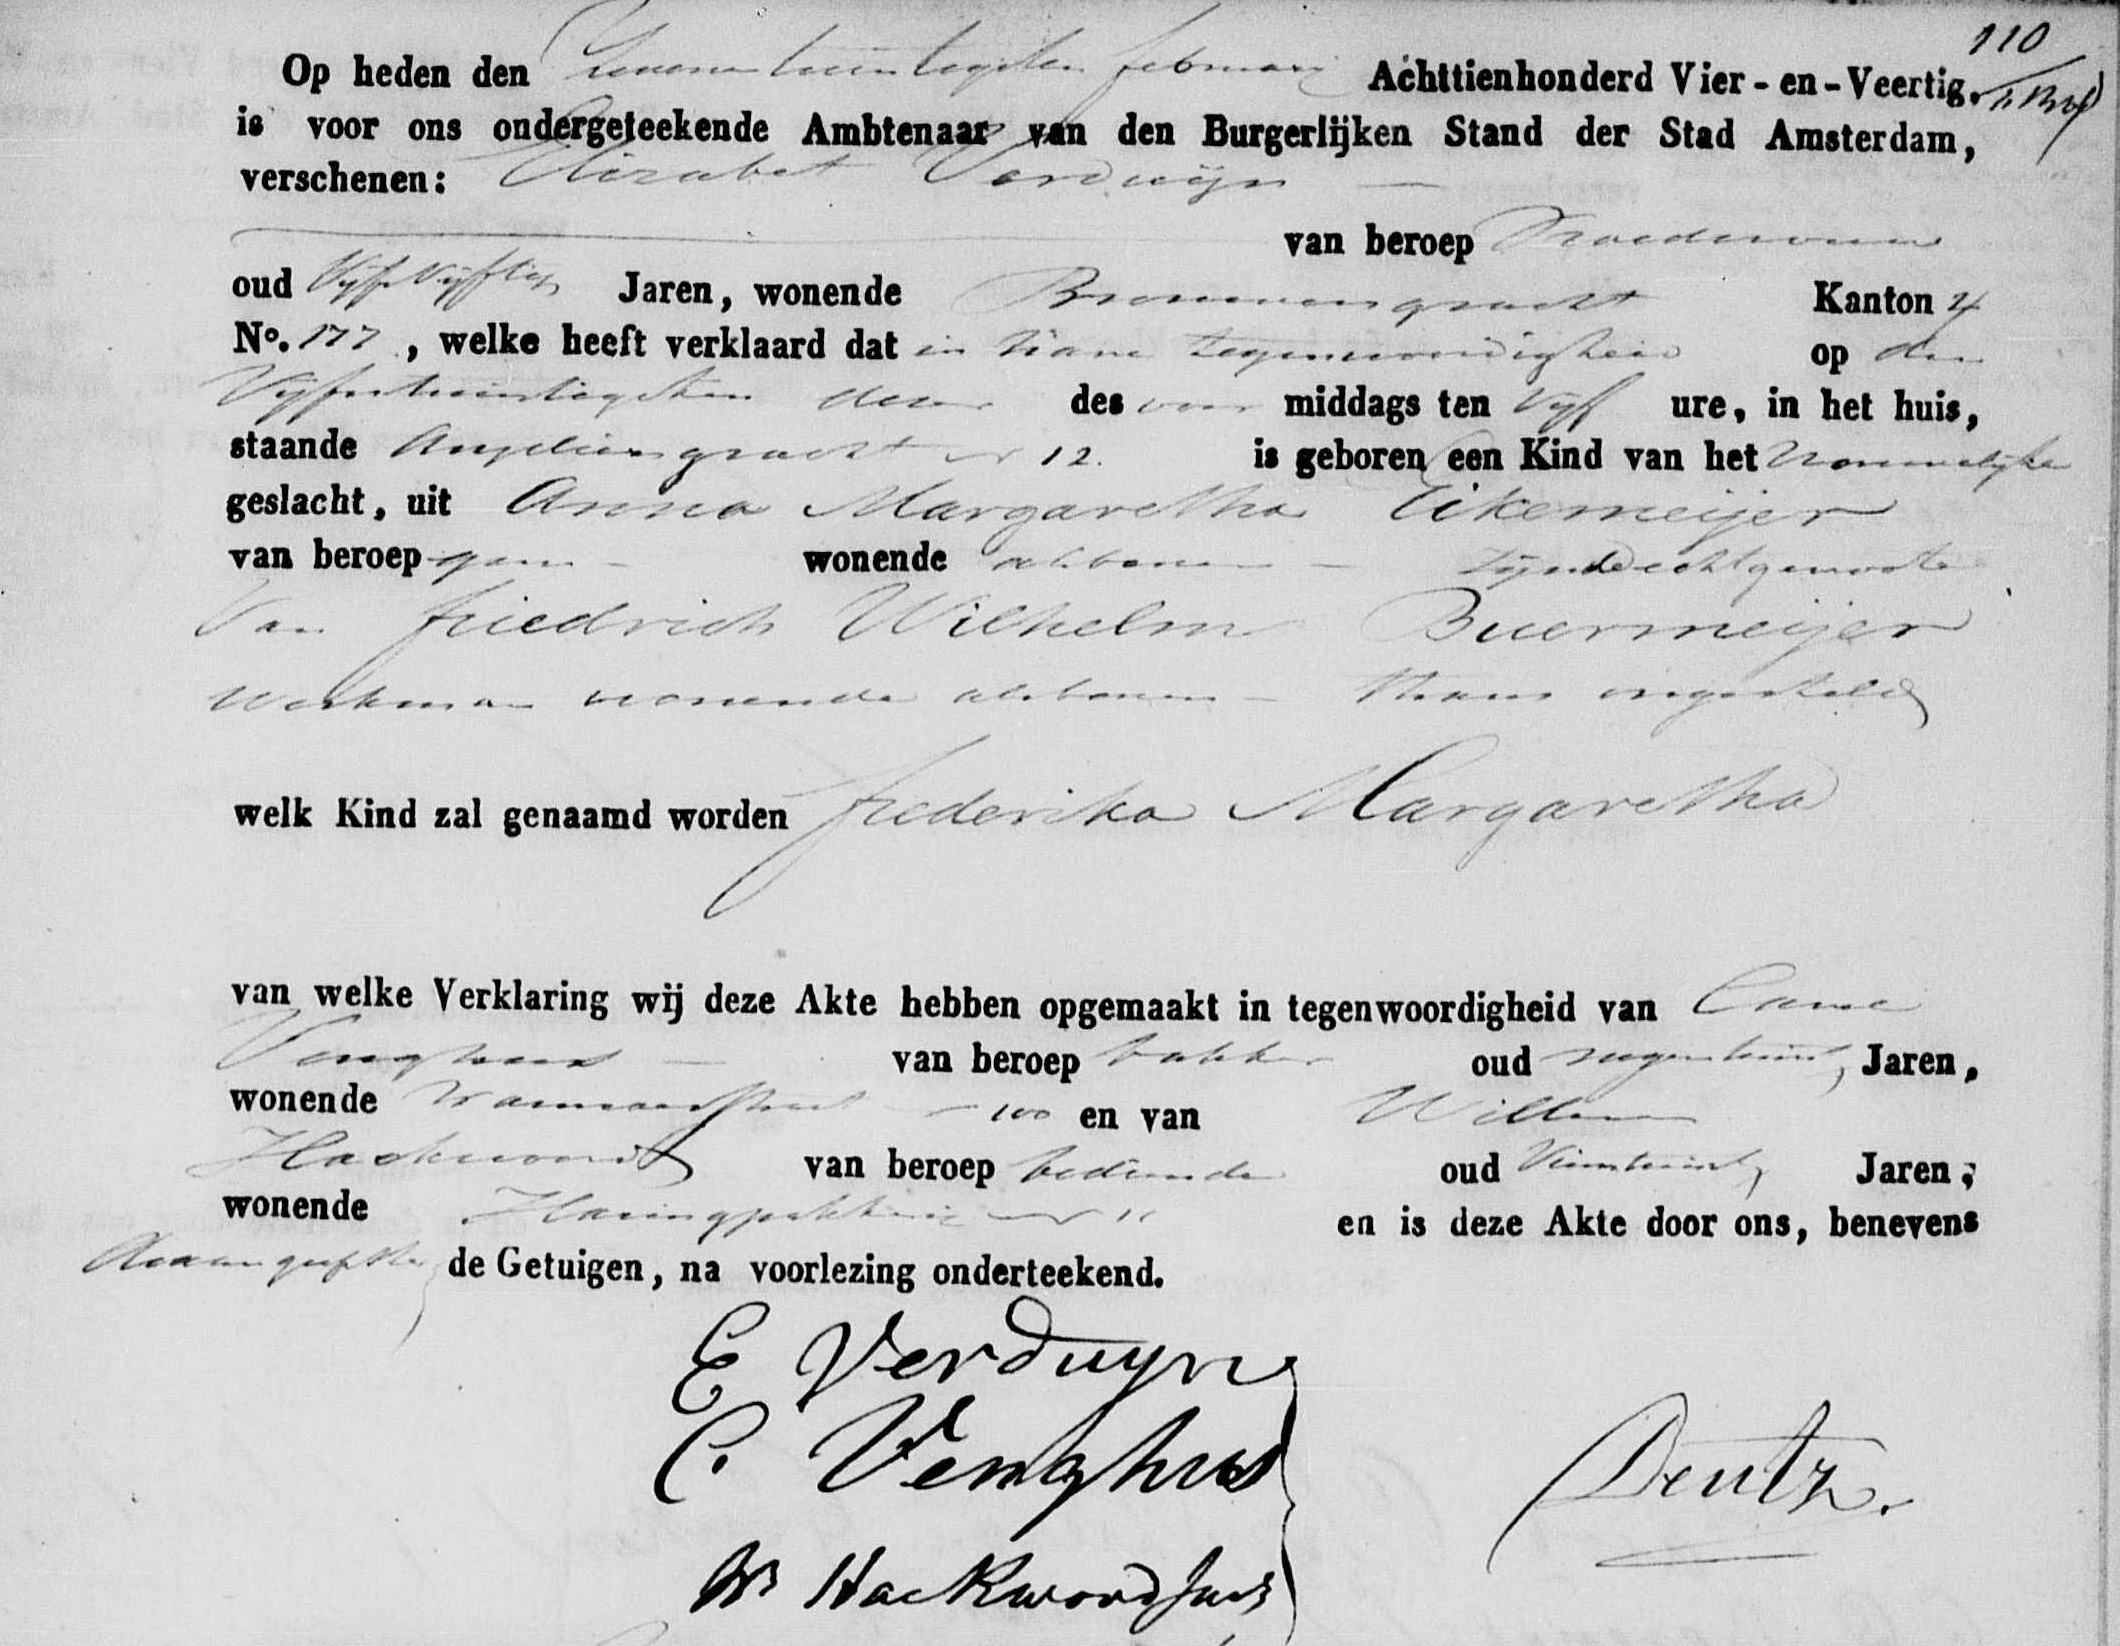 110
Op heden den Zevenentwintigsten februarij Achttienhonderd Vier-en-Veertig.
is voor ons ondergeteekende Ambtenaar van den Burgerlijken Stand der Stad Amsterdam,
verschenen: Elizabet Verduijn
van beroep Vroedvrouw
oud Vijfenvijftig Jaren, wonende Brouwersgracht Kanton 4
No. 177, welke heeft verklaard dat in hare tegenwoordigheid op den
Vijfentwintigsten dezer des voor middags ten Vijf ure, in het huis,
staande Angeliersgracht nr 12. is geboren een Kind van het Vrouwelijke
geslacht, uit Anna Margaretha Eikemeijer
van beroep geen wonende alsboven zijnde echtgenoote
Van Friedrich Wilhelm Buermeijer
Werkman wonende alsboven thans ongesteld
welk Kind zal genaamd worden Frederika Margaretha
van welke Verklaring wij deze Akte hebben opgemaakt in tegenwoordigheid van
Venghaus van beroep bakker oud negentwint, Jaren,
wonende 100 en van Willem
Hackwoord van beroep bediende oud Jaren;
wonende Haringpakkerij nr 11 en is deze Akte door ons, benevens
de Getuigen, na voorlezing onderteekend.
E Verduyn
C. Venghus
Deutz.
W Hackwoord